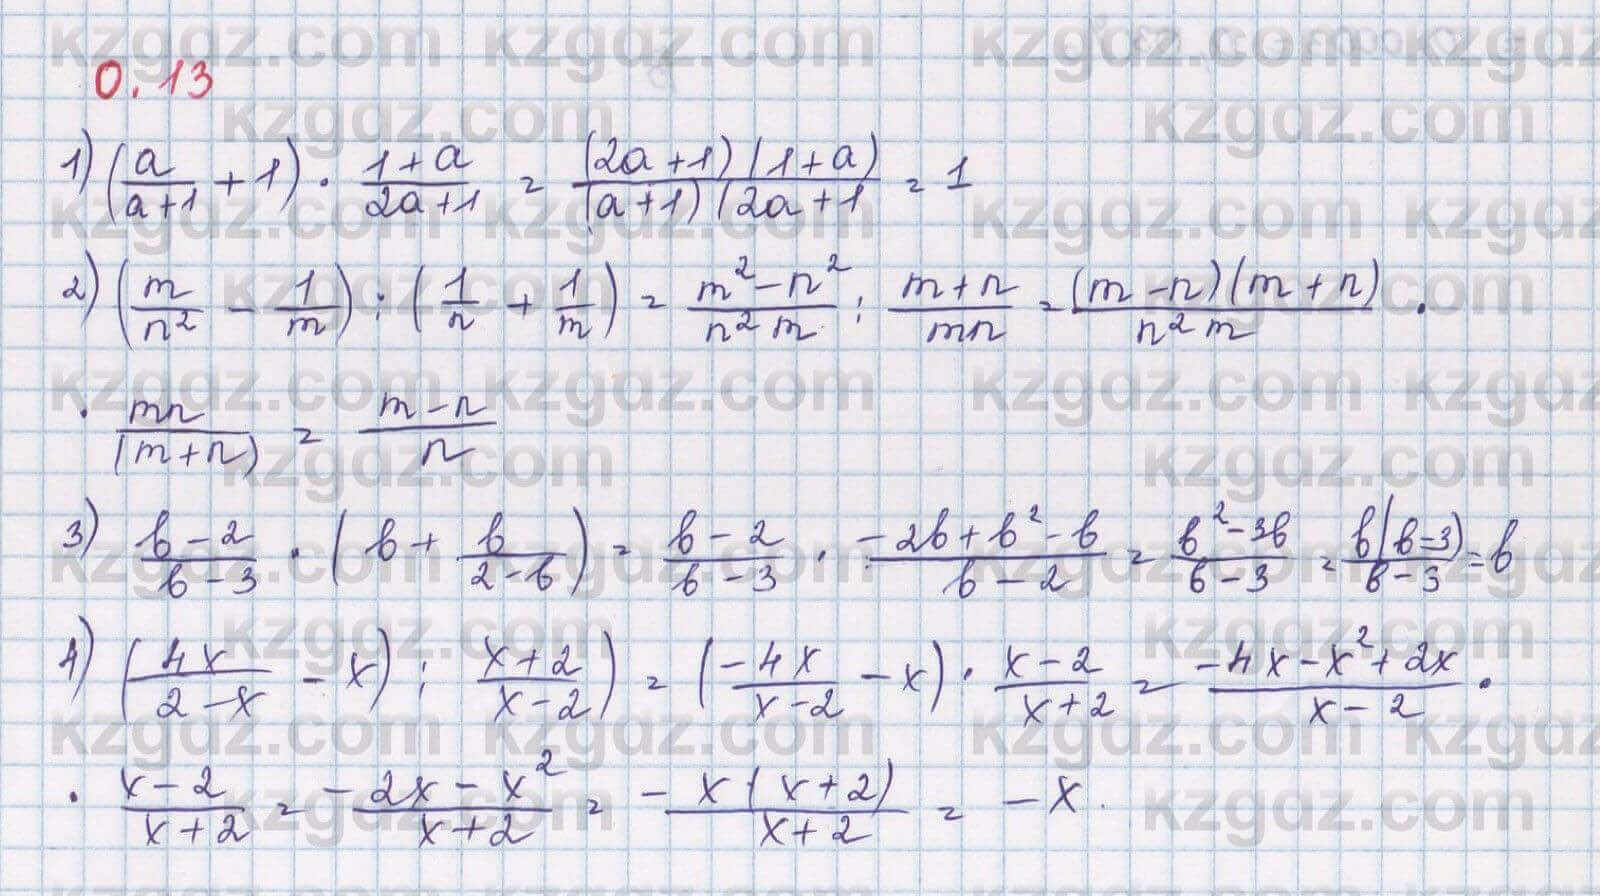 0.13
1) (a/(a+1) + 1) · (1+a)/(2a+1) = (2a+1)(1+a)/(a+1)(2a+1 = 1
2) (m/n² - 1/m) : (1/n + 1/m) = (m²-n²)/(n²m) : (m+n)/(mn) = (m-n)(m+n)/(n²m) ·
· mn/(m+n) = (m-n)/n
3) (b-2)/(b-3) · (b + b/(2-b)) = (b-2)/(b-3) · (-2b+b²-b)/(b-2) = (b²-3b)/(b-3) = b(b-3)/(b-3) = b
4) (4x/(2-x) - x) : (x+2)/(x-2)) = (-4x/(x-2) - x) · (x-2)/(x+2) = (-4x-x²+2x)/(x-2) ·
· (x-2)/(x+2) = (-2x-x²)/(x+2) = - x(x+2)/(x+2) = -x.
kzgdz.com